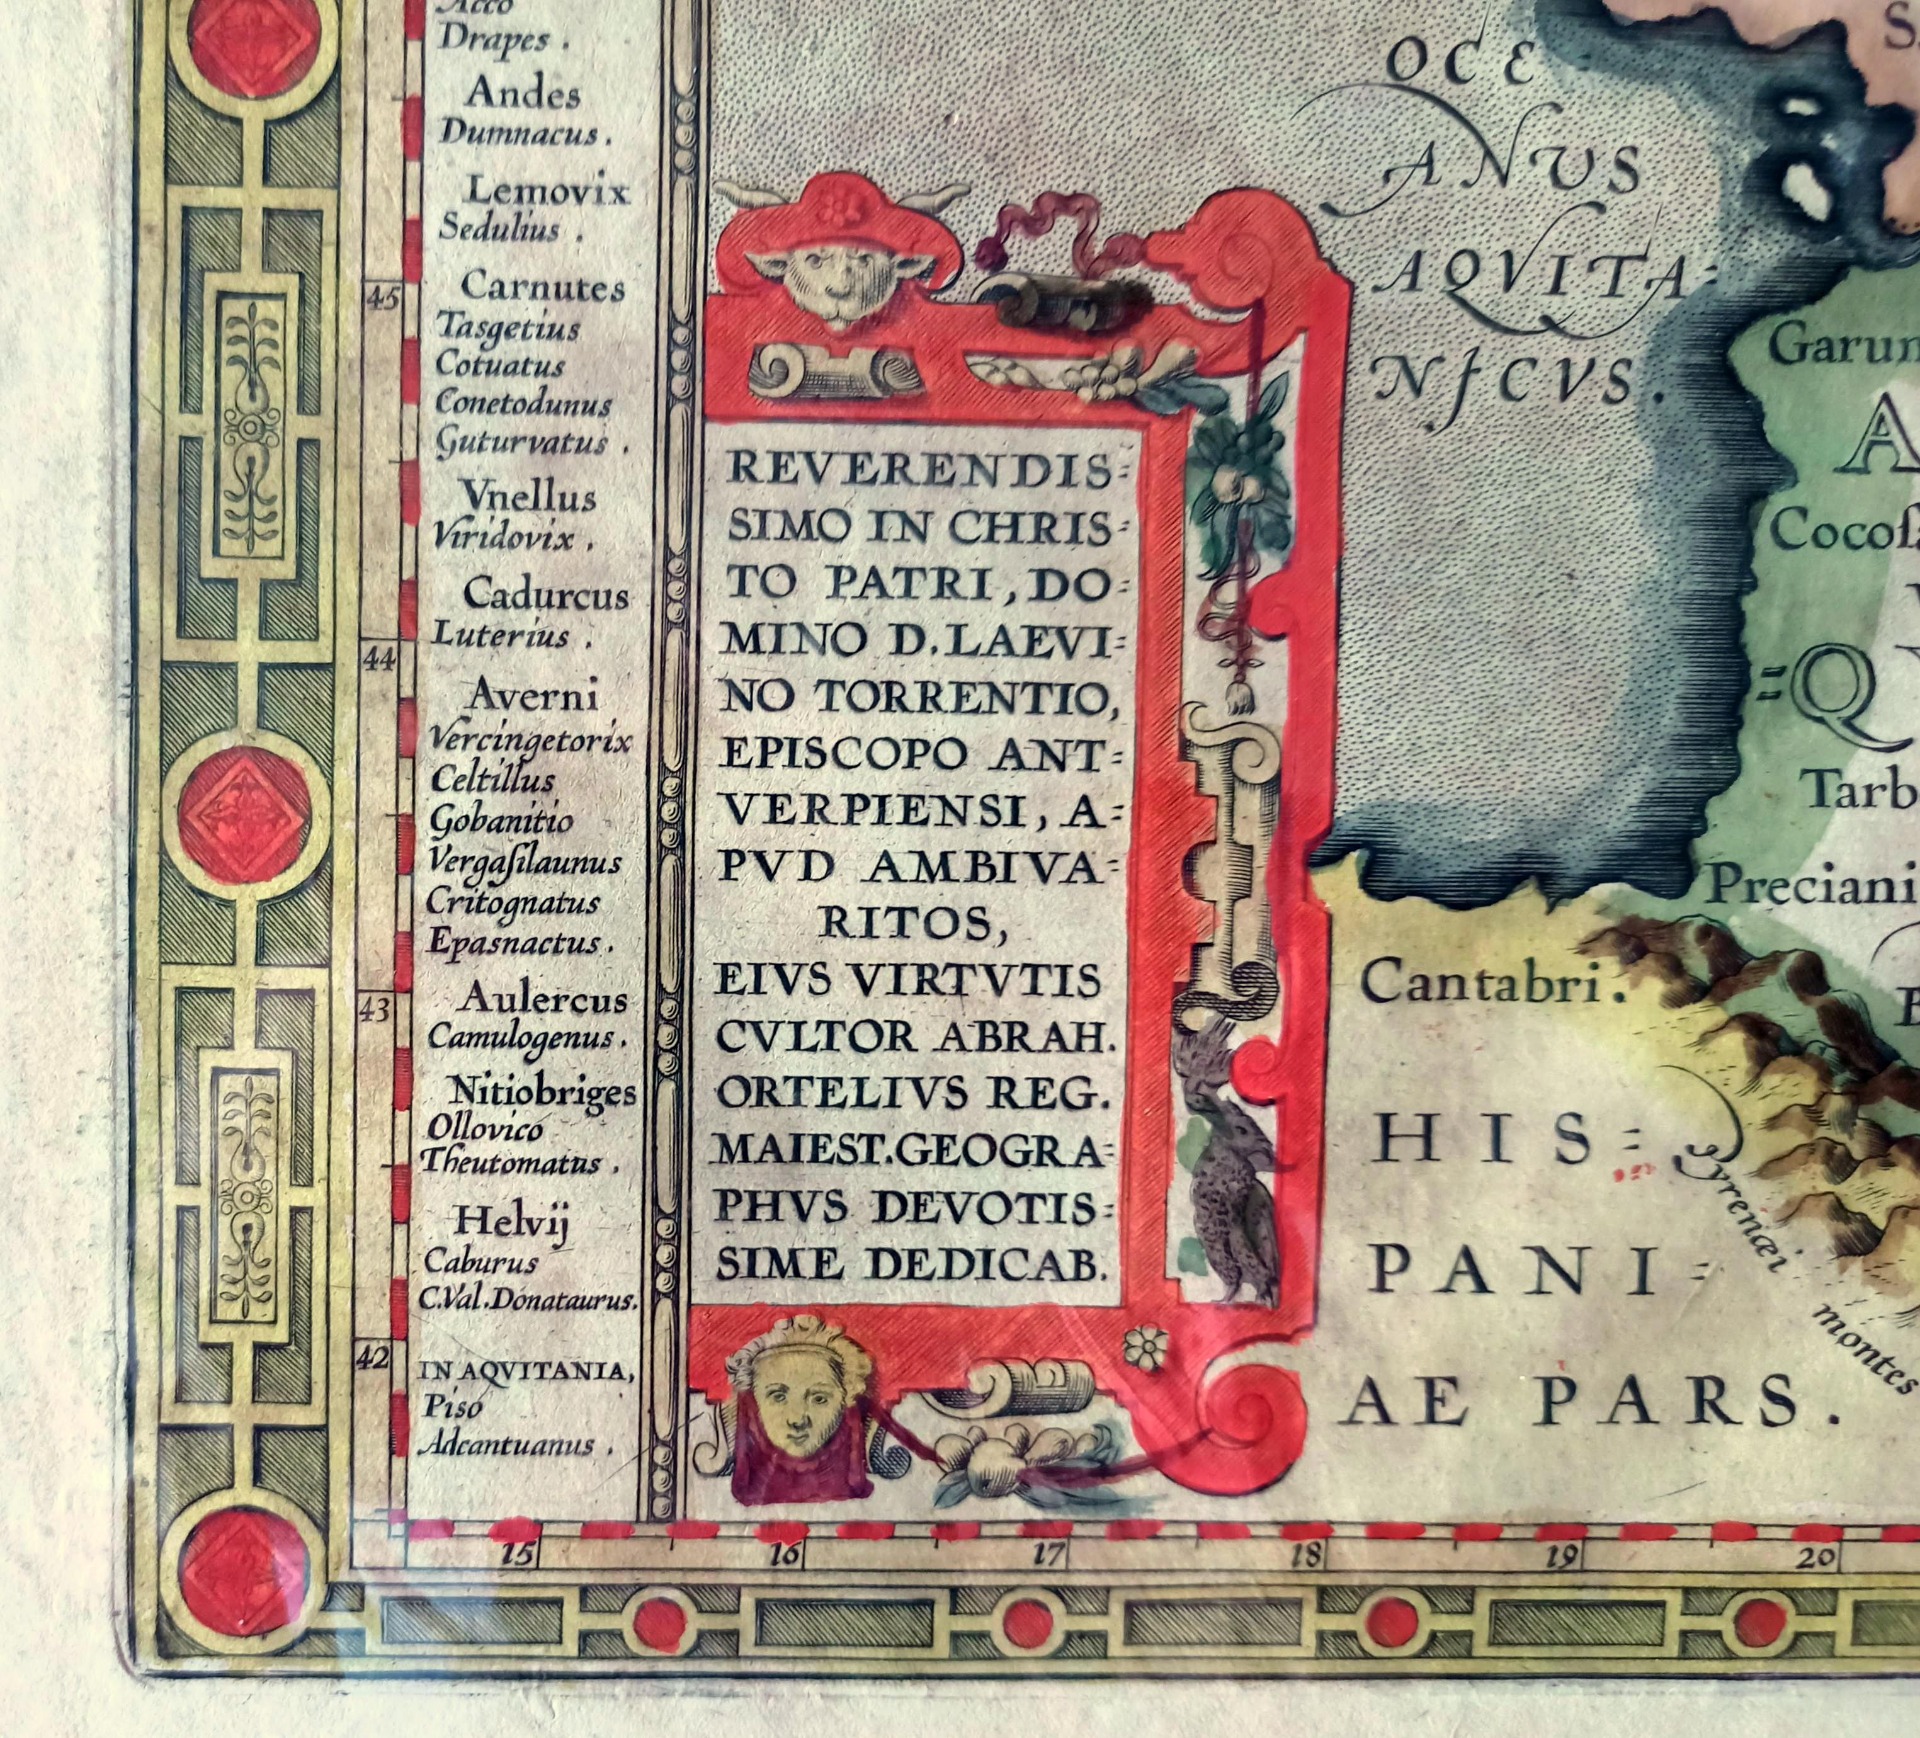 Acco
Drapes .
Andes
Dumnacus .
Lemovix
Sedulius .
Carnutes
Tasgetius
Cotuatus
Conetodunus
Guturvatus .
Vnellus
Viridovix .
Cadurcus
Luterius .
Averni
Vercingetorix
Celtillus
Gobanitio
Vergaſilaunus
Critognatus
Epasnactus .
Aulercus
Camulogenus .
Nitiobriges
Ollovico
Theutomatus .
Helvij
Caburus
C.Val.Donataurus.
IN AQVITANIA,
Piso
Adcantuanus .
45
44
43
42
REVERENDIS=
SIMO IN CHRIS=
TO PATRI, DO=
MINO D. LAEVI=
NO TORRENTIO,
EPISCOPO ANT=
VERPIENSI, A=
PVD AMBIVA=
RITOS,
EIVS VIRTVTIS
CVLTOR ABRAH.
ORTELIVS REG.
MAIEST.GEOGRA=
PHVS DEVOTIS=
SIME DEDICAB.
OCE
ANVS
AQVITA=
NICVS.
Garum
A
Cocoſ
=Q
Tarb
Preciani
Cantabri.
HIS=
PANI=
AE PARS.
Pyrenæi
montes
15 16 17 18 19 20